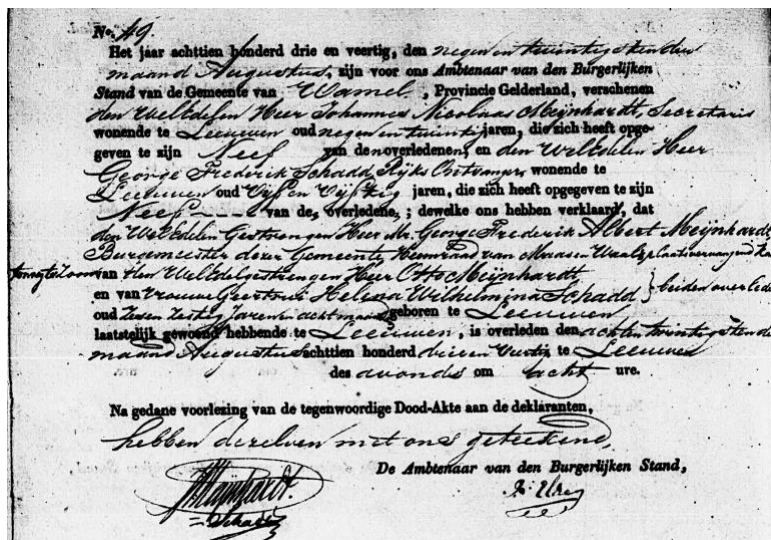 No. 49.
Het jaar achttien honderd drie en veertig, den negen en twintigsten der
maand Augustus, zijn voor ons Ambtenaar van den Burgerlijken
Stand van de Gemeente van Wamel, Provincie Gelderland, verschenen
den WelEdelen Heer Johannes Nicolaas Meijnhardt, Secretaris
wonende te Leeuwen oud negen en twintig jaren, die zich heeft opge-
geven te zijn Neef van de overledenen, en den WelEdelen Heer
George Frederik Schadd, Rijks Ontvanger, wonende te
Leeuwen oud Vijf en Vijftig jaren, die zich heeft opgegeven te zijn
Neef van de, overledene, ; dewelke ons hebben verklaard, dat
den WelEdelen Gestrengen Heer Mr. George Frederik Albert Meijnhardt,
Burgemeister dezer Gemeente, Heemraad van Maas en Waal, plaatsvervangend
zoon van den WelEdelGestrengen Heer Otto Meijnhardt
en van Vrouwe Geertrui Helena Wilhelmina Schadd } beiden overleden
oud Zes en Zestig Jaren en acht maand geboren te Leeuwen
laatstelijk gewoond hebbende te Leeuwen, is overleden den acht en twintigsten der
maand Augustus achttien honderd drie en Veertig te Leeuwen
des avonds om acht ure.
Na gedane voorlezing van de tegenwoordige Dood-Akte aan de deklaranten,
hebben dezelven met ons geteekend,
De Ambtenaar van den Burgerlijken Stand,
JNMeijnhardt.
Schadd